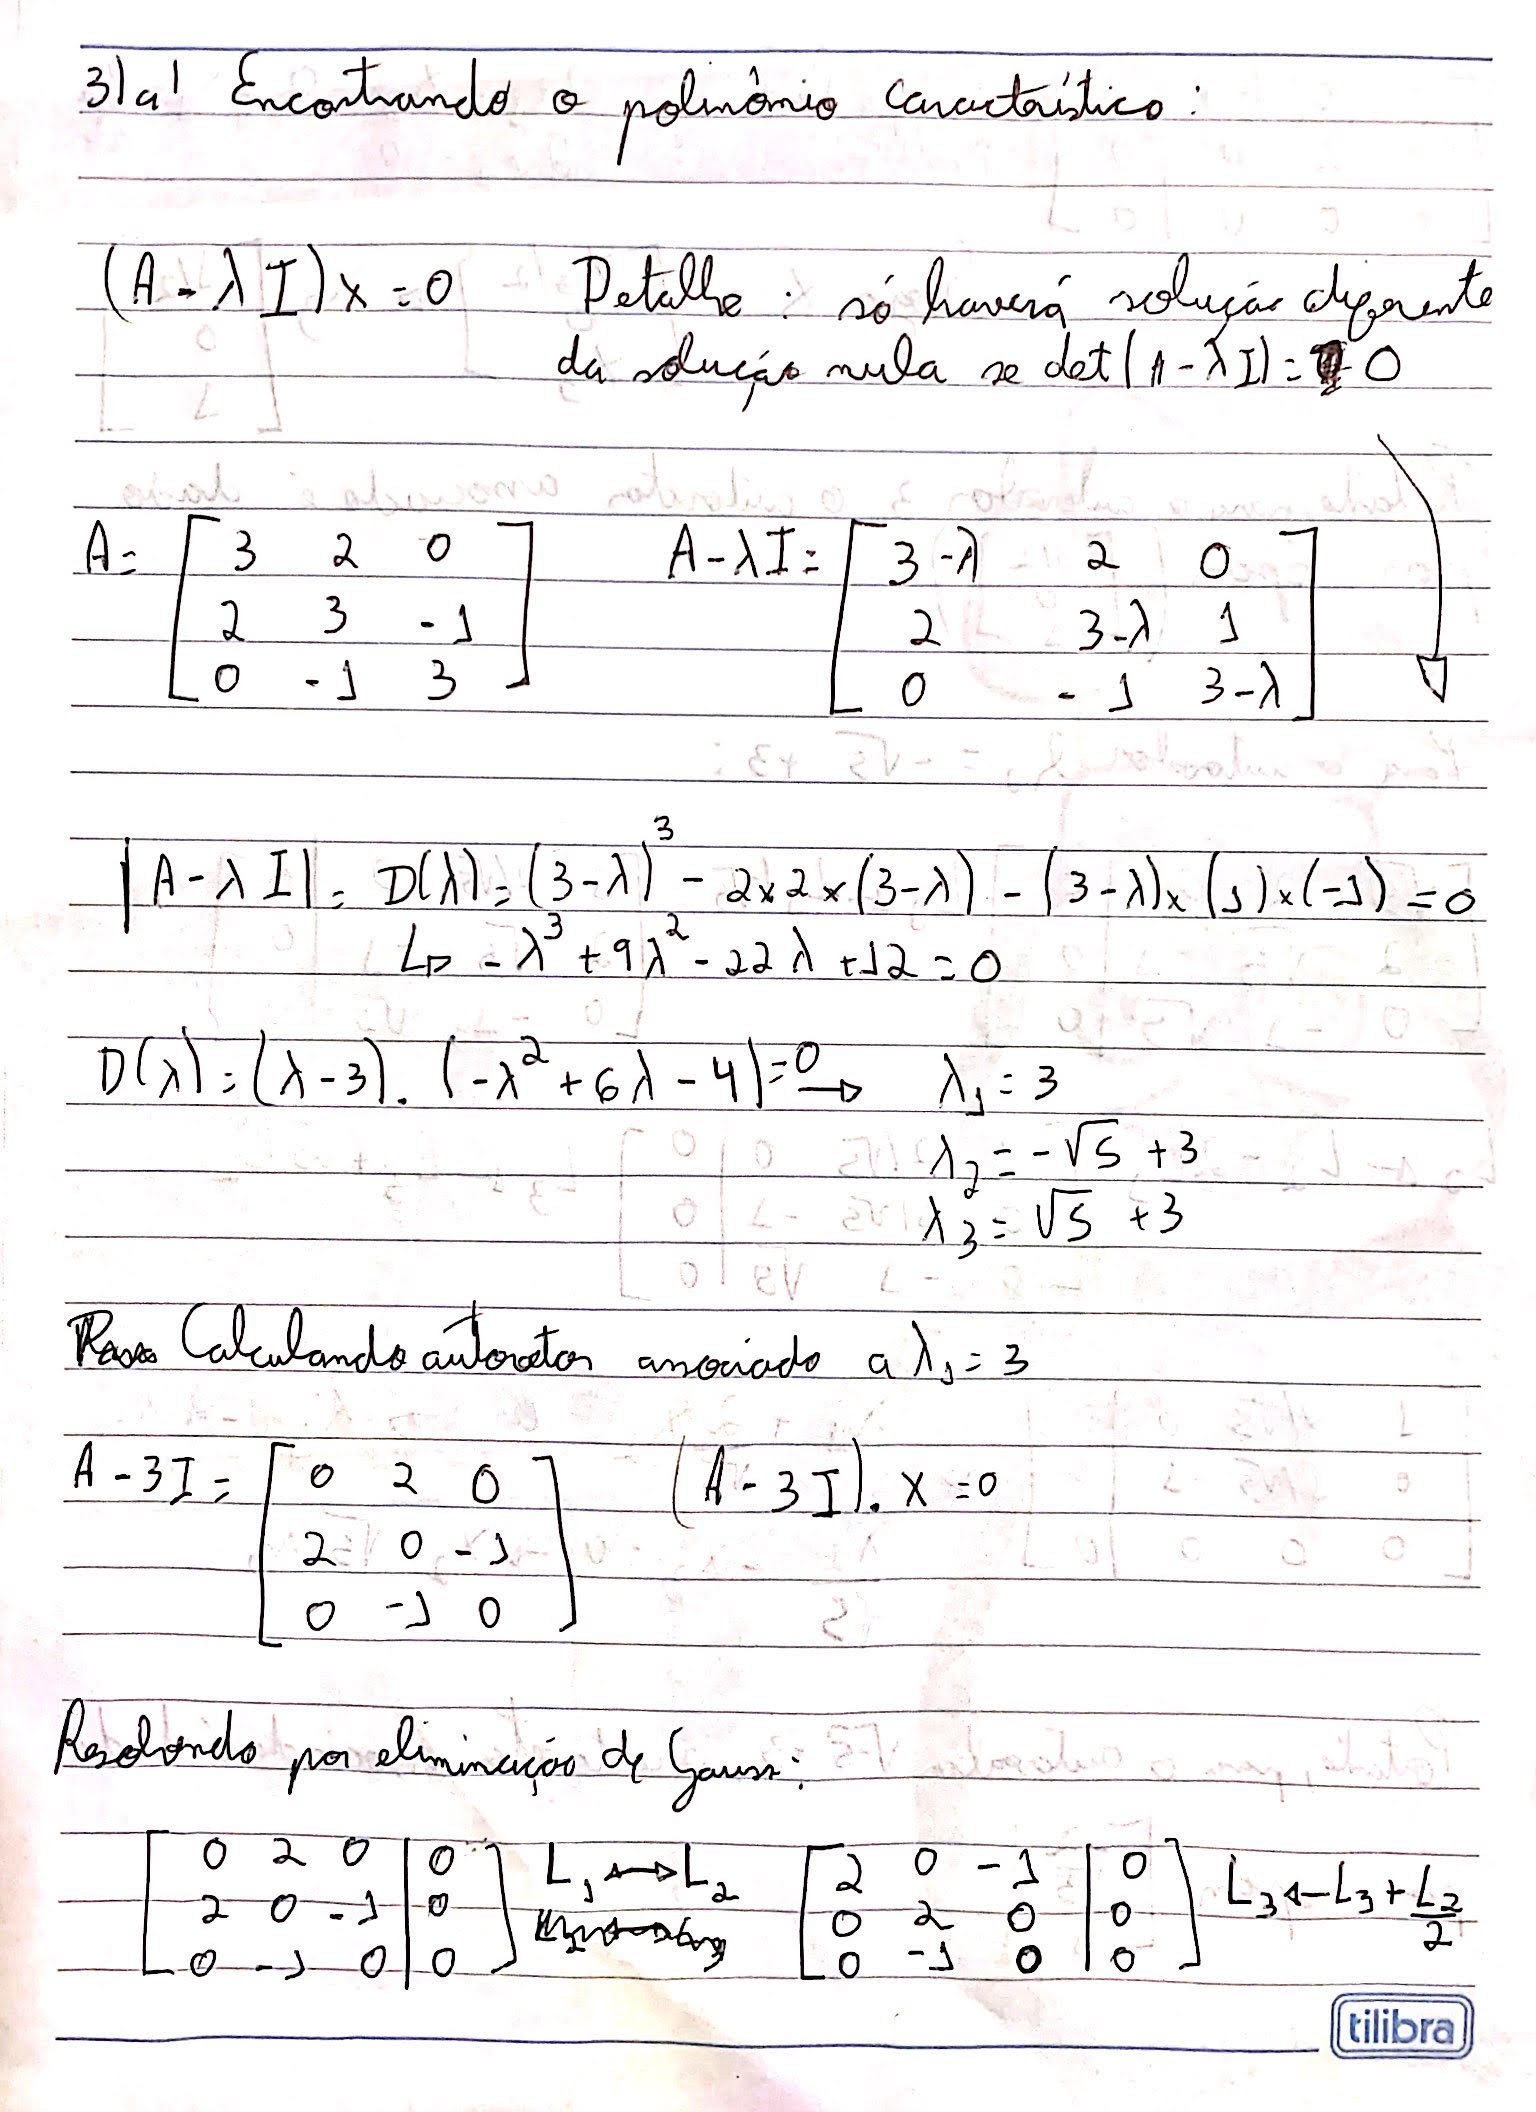 3)a) Encontrando o polinômio característico:
(A - λI)x = 0 Detalhe: só haverá solução diferente
da solução nula se det(A - λI) = 0
A = [3 2 0; 2 3 -1; 0 -1 3] A - λI = [3-λ 2 0; 2 3-λ 1; 0 -1 3-λ]
|A - λI| = D(λ) = (3-λ)³ - 2x2x(3-λ) - (3-λ)x(1)x(-1) = 0
↳ -λ³ + 9λ² - 22λ + 12 = 0
D(λ) = (λ-3).(-λ² + 6λ - 4) = 0 → λ₁ = 3
λ₂ = -√5 + 3
λ₃ = √5 + 3
Calculando autovetor associado a λ₁ = 3
A - 3I = [0 2 0; 2 0 -1; 0 -1 0] (A - 3I).x = 0
Resolvendo por eliminação de Gauss:
[0 2 0 | 0; 2 0 -1 | 0; 0 -1 0 | 0] L₁ ↔ L₂ [2 0 -1 | 0; 0 2 0 | 0; 0 -1 0 | 0] L₃ ← L₃ + L₂/2
tilibra